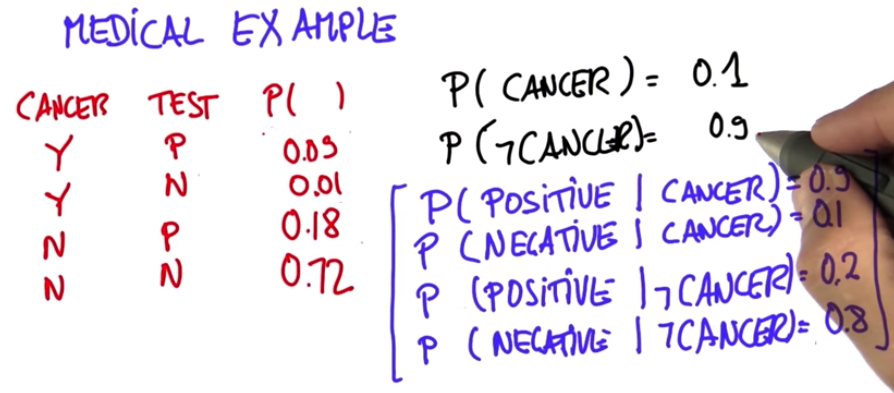 MEDICAL EXAMPLE
CANCER TEST P( )
Y P 0.09
Y N 0.01
N P 0.18
N N 0.72
P( CANCER ) = 0.1
P (¬CANCER)= 0.9
P( POSITIVE | CANCER) = 0.9
P (NEGATIVE | CANCER) = 0.1
P (POSITIVE |¬CANCER)= 0.2
P (NEGATIVE | ¬CANCER)= 0.8